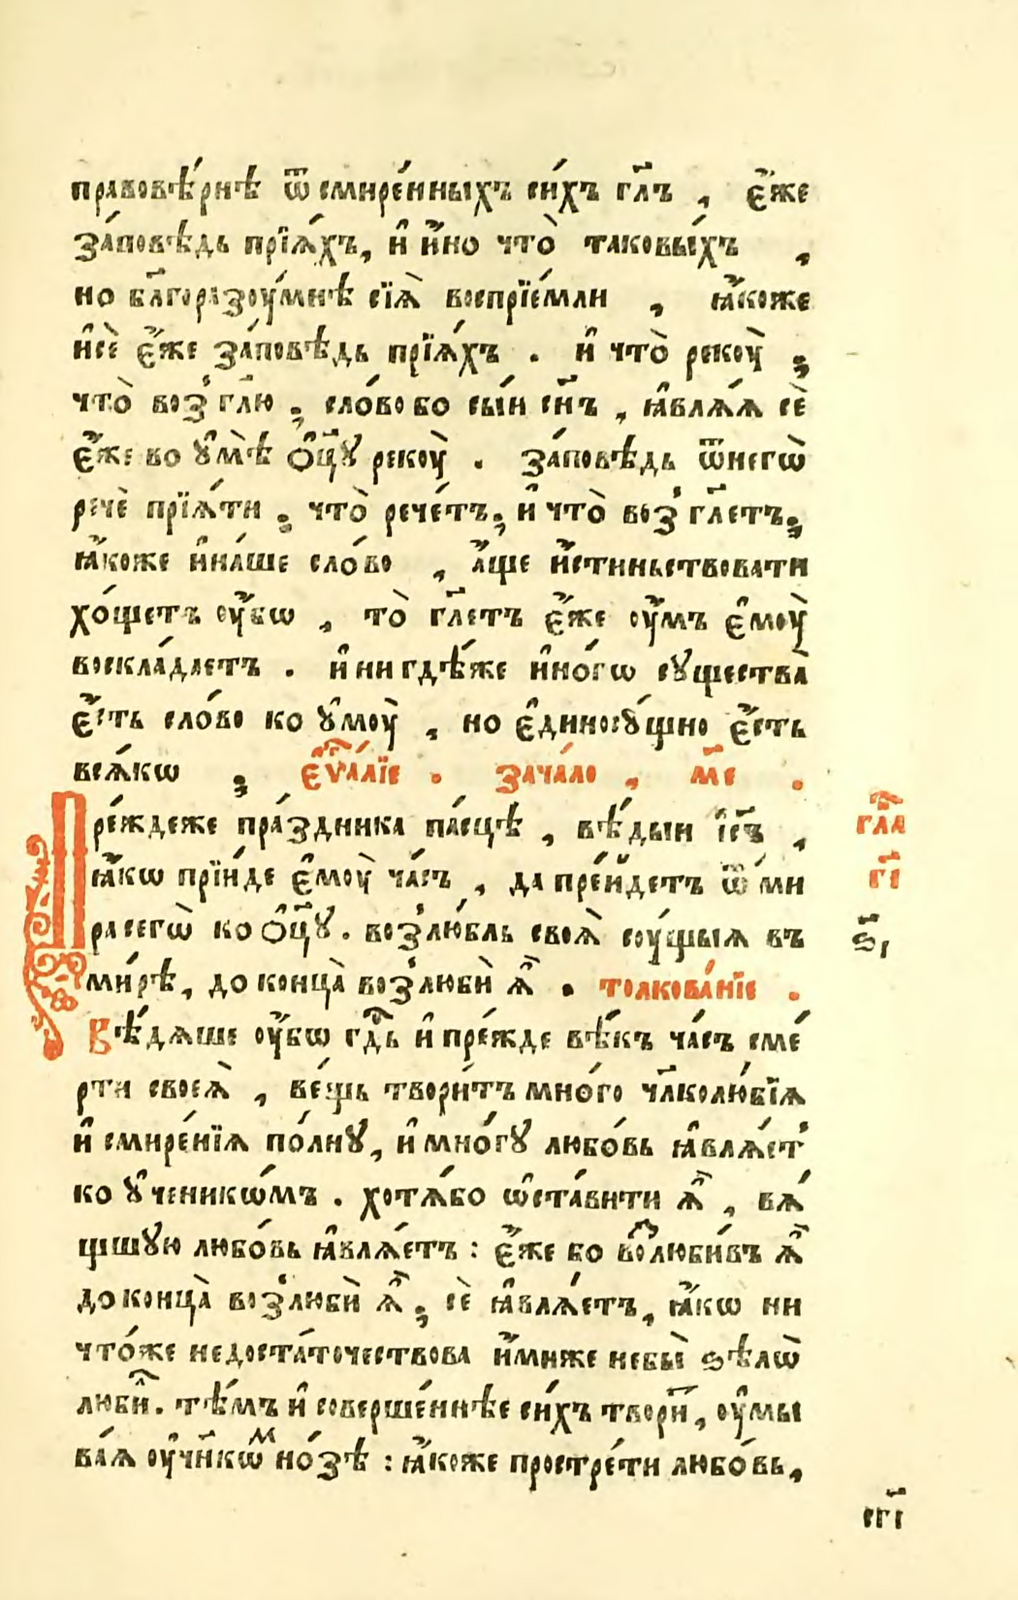 правовѣ́рнѣ ѿ смире́нныхъ си́хъ гл҃ъ , є҆́же
за́повѣдь прїѧ́хъ, и҆ и҆́но что̀ таковы́хъ ,
но бл҃горазоу́мнѣ сїѧ̀ воспрїе́мли , ꙗ҆́коже
и҆сѐ є҆́же за́повѣдь прїѧ́хъ . и҆ что̀ рекоу̀ ;
что̀ воз̾гл҃ю ; сло́во бо сы́и сн҃ъ , ꙗ҆влѧ́ѧ сѐ
є҆́же во ᲂу҆мѣ̀ ѻ҆ц҃ꙋ рекоу̀ . за́повѣдь ѿнегѡ̀
речѐ прїѧ́ти ; что̀ рече́тъ; и҆ что̀ воз̾гл҃етъ;
ꙗ҆́коже и҆на́ше сло́во , а҆́ще и҆́стиньствовати
хо́щетъ оу҆́бѡ , то̀ гл҃етъ є҆́же оу҆́мъ є҆моу̀
воскла́даетъ . и҆ нигдѣ́же и҆но́гѡ сꙋщества̀
є҆́сть сло́во ко ꙋ҆моу̀ , но є҆диносꙋ́щно є҆́сть
всѧ́кѡ ; є҆ѵⷢ҇а́лїе . зача́ло , м҃е .
Пре́ждеже пра́здника па́сцѣ , вѣ́дыи і҆с҃ъ ,
ꙗ҆́кѡ прїи́де є҆моу̀ ча́съ , да пре́йдетъ ѿ ми́
ра сегѡ̀ ко ѻ҆ц҃ꙋ . воз̾лю́бль своѧ̀ соу́щыѧ въ
ми́рѣ, до конца̀ воз̾люби̇̀ ѧ҆̀ . толкова́нїе .
Вѣ́дѧше оу҆́бѡ гдⷭ҇ь и҆ пре́жде вѣ́къ ча́съ сме́
рти своеѧ̀ , ве́щь твори́тъ мно́го чл҃колю́бїѧ
и҆ смире́нїѧ по́лнꙋ, и҆ мно́гꙋ любо́вь ꙗ҆влѧ́ет̾
ко ꙋ҆ченикѡ́мъ . хотѧ́бо ѡ҆ста́вити ѧ҆̀ , вѧ́
щшꙋю любо́вь ꙗ҆влѧ́етъ : є҆́же бо воⷥлюби́въ ѧ҆̀
до конца̀ воз̾люби̇̀ ѧ҆̀ ; сѐ ꙗ҆влѧ́етъ, ꙗ҆́кѡ ни
что́же недоста́точествова и҆́миже небы̀ ѕѣлѡ̀
люби́л. тѣ́мъ и҆ соверше́ннѣе си́хъ твори́т, оу҆мы
ва́ѧ оу҆чн҃кѡⷨ но́зѣ : ꙗ҆́коже простре́ти любо́вь,
глⷡ҇а
г҃і
ѕ҃,
ег҃і